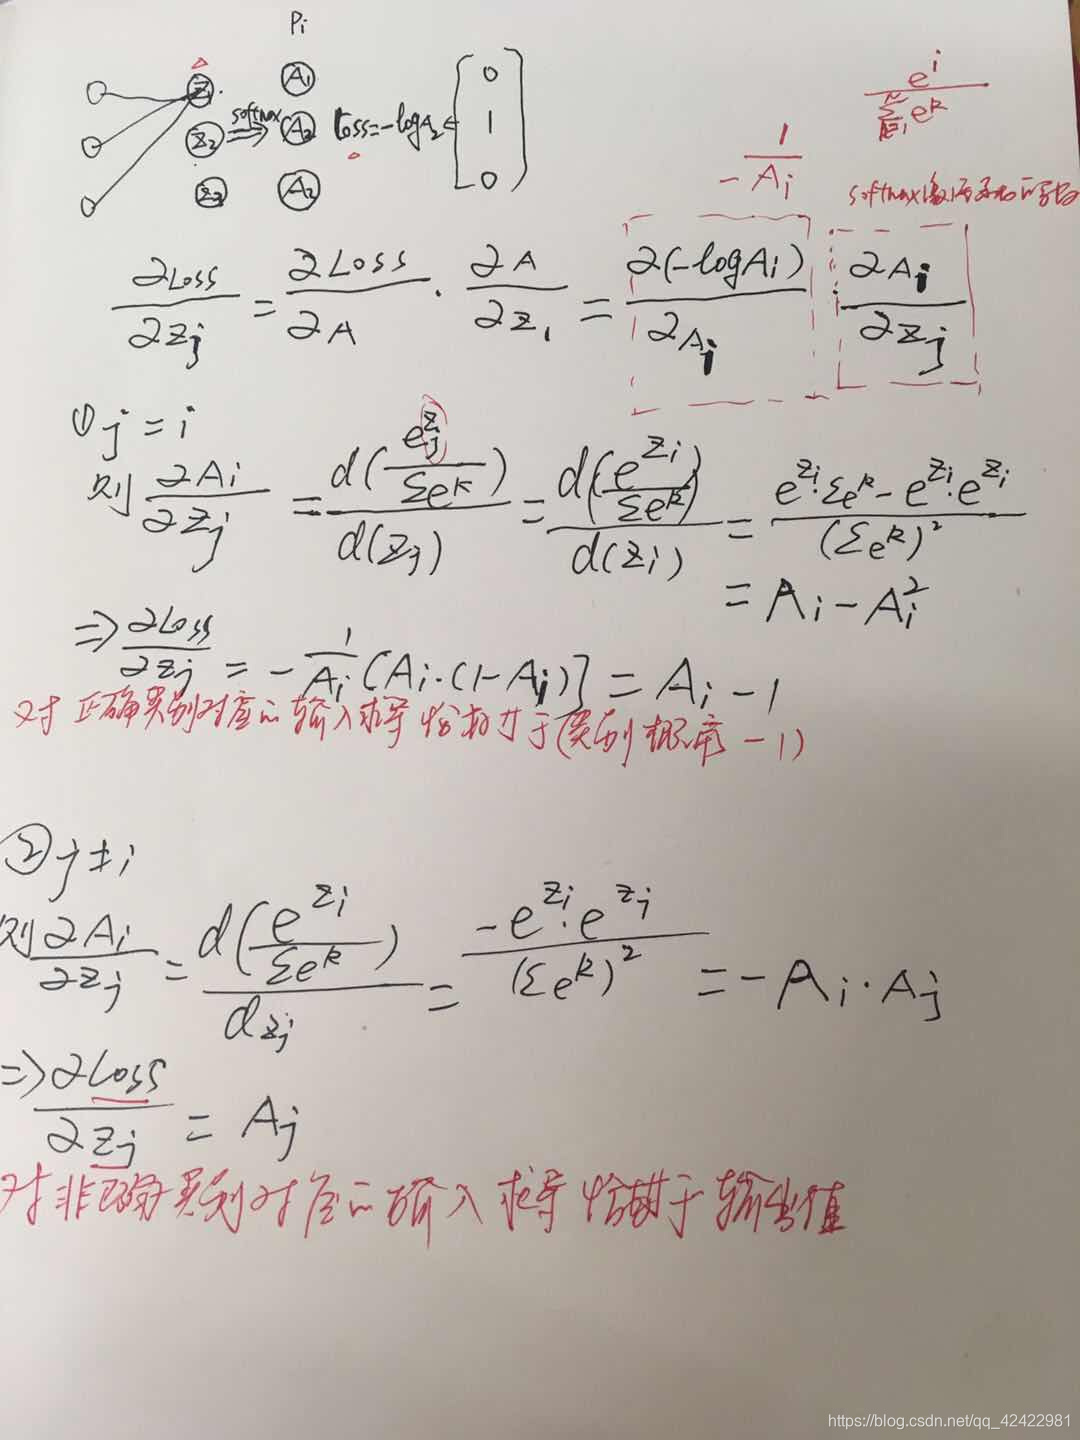 Pi
Z1 A1
Z2 softmax ⇒ A2 Loss=-logA2 ← [0 1 0]
Z3 A3
e^i / Σ_{k=1}^N e^k
-1/Ai
softmax激活函数的导数
∂Loss/∂Zj = ∂Loss/∂A · ∂A/∂Z1 = ∂(-logAi)/∂Ai ∂Ai/∂Zj
① j = i
则 ∂Ai/∂Zj = d(e^Zj/Σe^k)/d(Zj) = d(e^Zi/Σe^k)/d(Zi) = (e^Zi·Σe^k - e^Zi·e^Zi)/(Σe^k)²
= Ai - Ai²
⇒ ∂Loss/∂Zj = -1/Ai [Ai·(1-Ai)] = Ai - 1
对正确类别对应的输入求导恰好等于(类别概率-1)
② j≠i
则 ∂Ai/∂Zj = d(e^Zi/Σe^k)/dZj = -e^Zi·e^Zj/(Σe^k)² = -Ai·Aj
⇒ ∂Loss/∂Zj = Aj
对非正确类别对应的输入求导恰好等于输出值
https://blog.csdn.net/qq_42422981